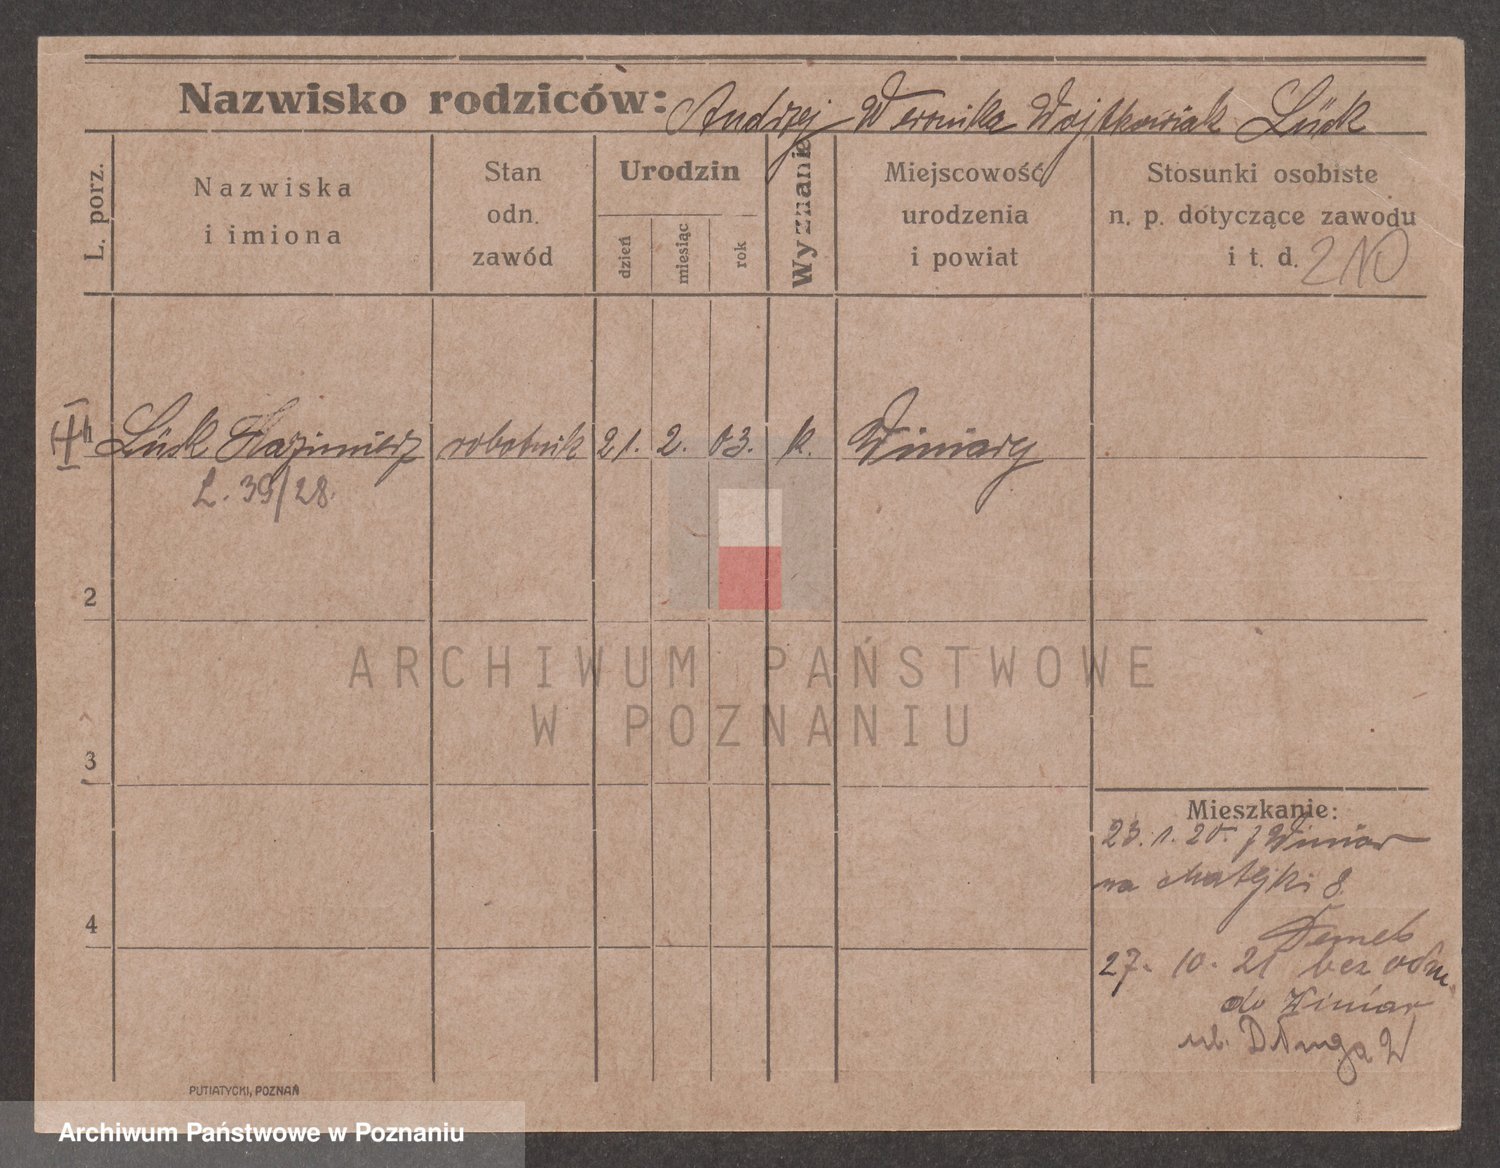 Nazwisko rodziców: Andrzej Weronika Wojtkowiak Lück
L. porz.
Nazwiska
i imiona
Stan
odn.
zawód
Urodzin
dzień
miesiąc
rok
Wyznanie
Miejscowość
urodzenia
i powiat
Stosunki osobiste
n. p. dotyczące zawodu
i t. d.
Lück Kazimierz robotnik 21. 2. 03. k. Winiary
L. 39/28.
2
3
4
ARCHIWUM PAŃSTWOWE
W POZNANIU
Mieszkanie:
23. 1. 20. z Winiar
na Matejki 8.
27. 10. 21 bez odm.
do Winiar
ul. Długa
PUTIATYCKI, POZNAŃ
Archiwum Państwowe w Poznaniu